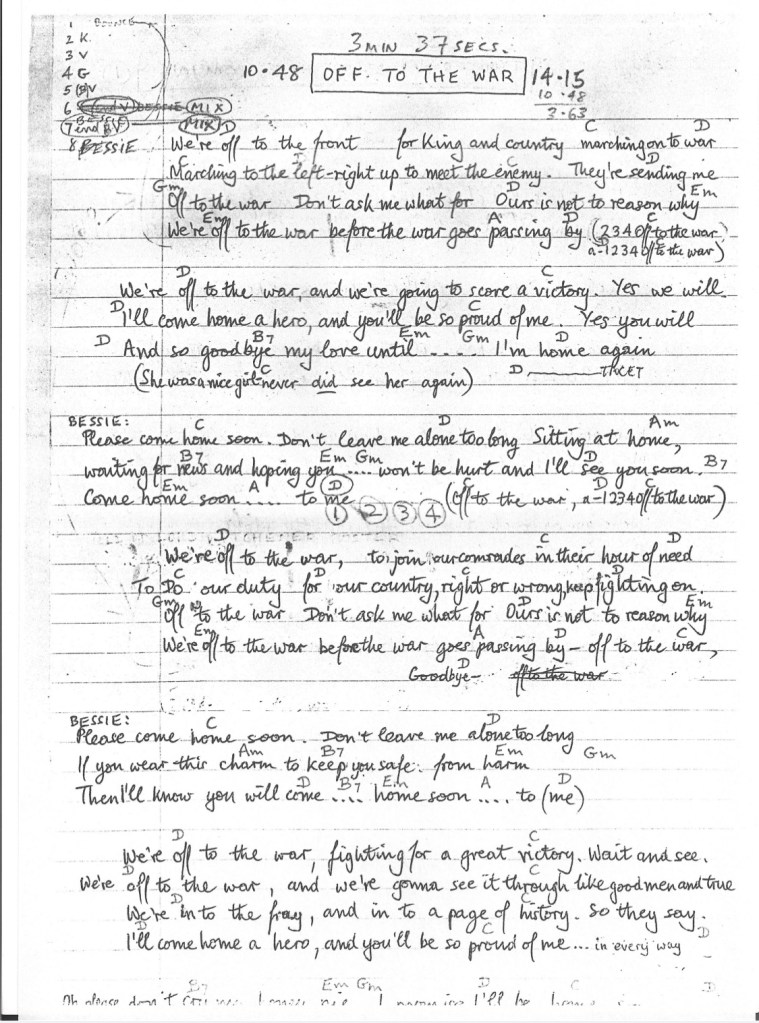 3 MIN 37 SECS.
10.48 OFF TO THE WAR 14.15
10.48
3.63
1 BOUNCE
2 K.
3 V
4 G
5 V
6 BESSIE MIX
7 BESSIE MIX
8 BESSIE
D C D
We're off to the front for King and country marching on to war
C D C D
Marching to the left-right up to meet the enemy. They're sending me
Gm D Em
Off to the war Don't ask me what for Ours is not to reason why
Em A D C
We're off to the war before the war goes passing by (2340ff to the war
D C
a-12340ff to the war)
D C
We're off to the war, and we're going to score a victory. Yes we will.
D C
I'll come home a hero, and you'll be so proud of me. Yes you will
D B7 Em Gm D
And so goodbye my love until ..... I'm home again
C D TACET
(She was a nice girl-never did see her again)
BESSIE:
C D Am
Please come home soon. Don't leave me alone too long Sitting at home,
B7 Em Gm D B7
waiting for news and hoping you .... won't be hurt and I'll see you soon.
Em A D C D C
Come home soon .... to me (Off to the war, a-12340ff to the war)
1 2 3 4
D C D
We're off to the war, to join our comrades in their hour of need
C D C D
To Do our duty for our country, right or wrong, keep fighting on.
Gm D Em
Off to the war Don't ask me what for Ours is not to reason why
Em A D C
We're off to the war before the war goes passing by - off to the war,
D
Goodbye- off to the war
BESSIE:
C D
Please come home soon. Don't leave me alone too long
Am B7 Em Gm
If you wear this charm to keep you safe from harm
D B7 Em A D
Then I'll know you will come .... home soon .... to (me)
D C
We're off to the war, fighting for a great victory. Wait and see.
D C
We're off to the war, and we're gonna see it through like good men and true
D C
We're in to the fray, and in to a page of history. So they say.
D C D
I'll come home a hero, and you'll be so proud of me... in every way
B7 Em Gm D C D
Oh please don't I'll be